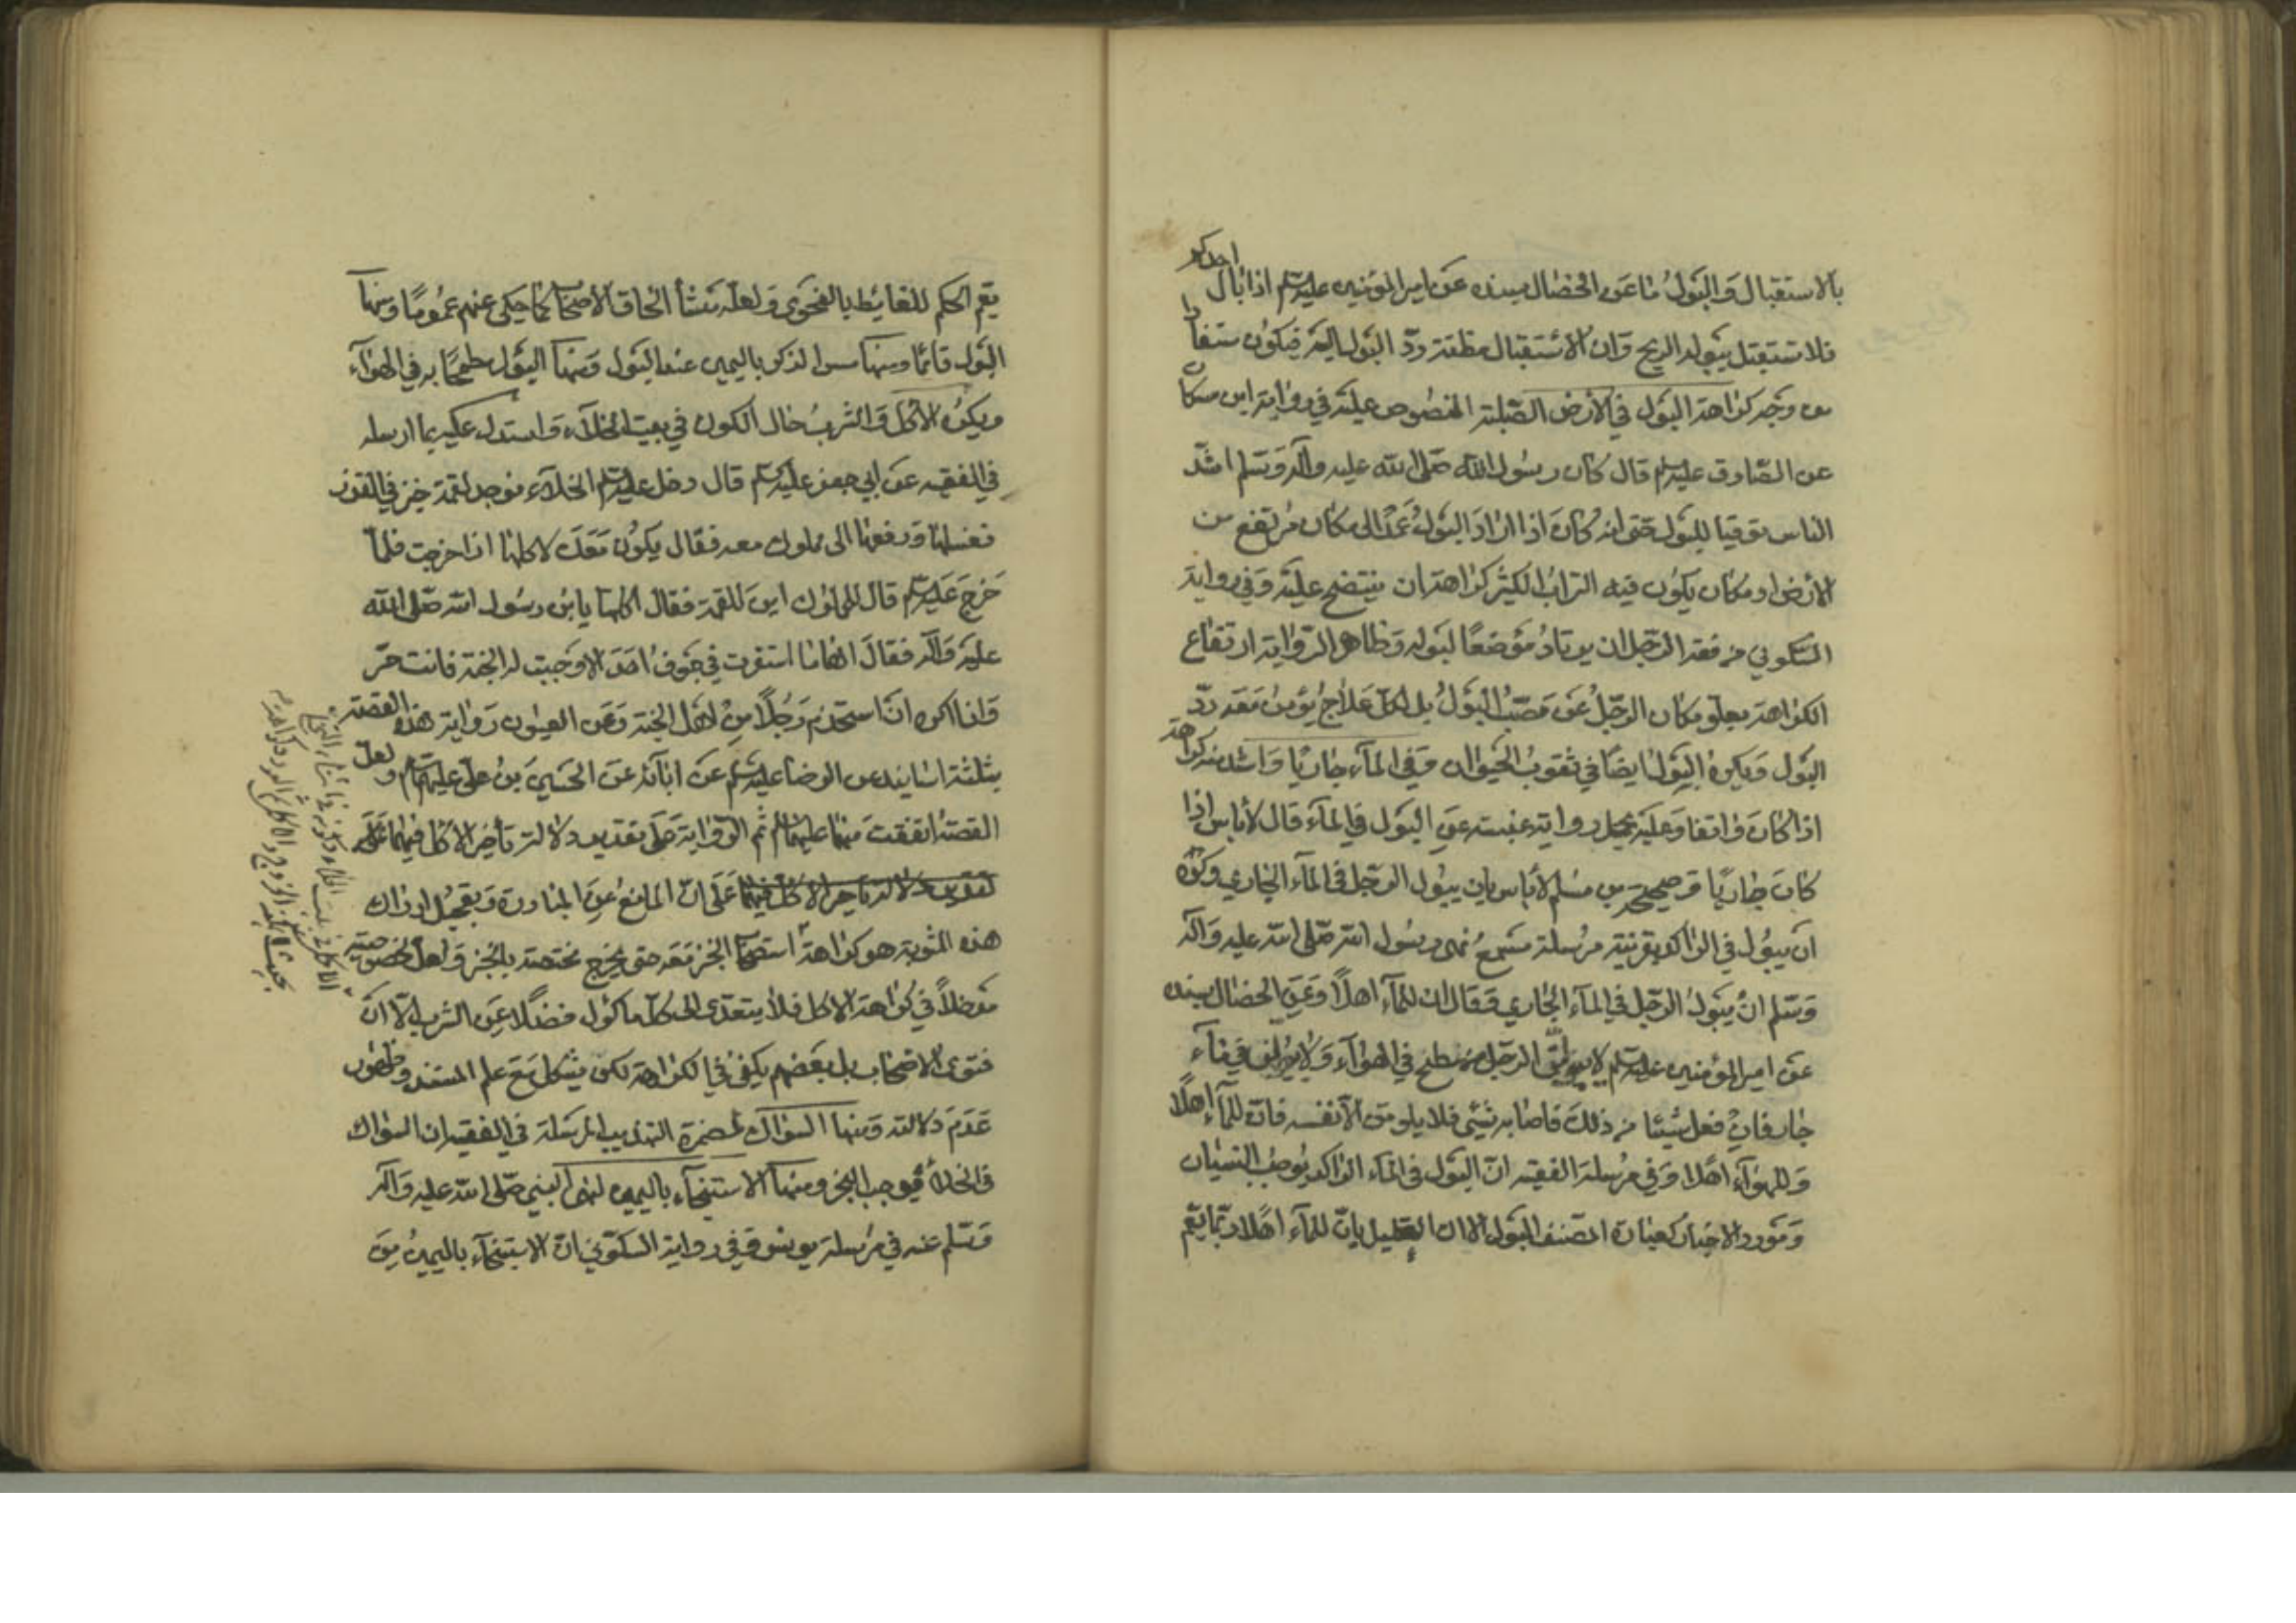 بالاستقبال والبول ما عن الخصال بسنده عن امير المؤمنين عليه السلم اذا بال احدكم
فلا تستقبل ببوله الريح وان الاستقبال مظنة ردّ البول اليه فيكون مستفادا
من وجه كراهة البول في الأرض الصّلبة المنصوص عليه في رواية ابن مسكان
عن الصّادق عليه السلم قال كان رسول الله صلى الله عليه وآله وسلم اشدّ
الناس توقيا للبول حتى انه كان اذا اراد البول عمد الى مكان مرتفع من
الأرض او مكان يكون فيه التراب الكثير كراهة ان ينتضح عليه وفي رواية
السكوني من فقه الرّجل ان يرتاد موضعًا لبوله وظاهر الرواية ارتفاع
الكراهة بعلو مكان الرّجل عن مصبّ البول بل لكل علاج يؤمن معه ردّ
البول ويكره البول ايضا في ثقوب الحيوان وفي الماء جاريًا واشد منه كراهة
اذا كان واقفا وعليه يحمل رواية عنبسة عن البول في الماء قال لا بأس اذا
كان جاريًا وصحيحة بن مسلم لا باس بان يبول الرجل في الماء الجاري وكره
ان يبول في الراكد بقرينة مرسلة مسمع نهى رسول الله صلى الله عليه وآله
وسلم ان يبول الرّجل في الماء الجاري فقال ان للماء اهلاً وعن الخصال بسنده
عن امير المؤمنين عليه السلم لا يبولنّ الرجل من سطح في الهواء ولا يبولن في ماء
جار فان فعل شيئا من ذلك فاصابه شيئ فلا يلومن الّا نفسه فان للماء اهلاً
وللهواء اهلا وفي مرسلة الفقيه انّ البول في الماء الراكد يوجب النسيان
ومورد الاخبار كعبارة المصنف البول الا ان التعليل بانّ للماء اهلا ربّما يعم
يعم الحكم للغائط بالفحوى ولعله منشأ الحاق الأصحاب كما حكى عنهم عمومًا ومنها
البول قائمًا ومنها مس الذكر باليمين عند البول ومنها البول طمحًا به في الهواء
ويكره الأكل والشرب حال الكون في بيت الخلاء واستدل عليه بما ارسله
في الفقيه عن ابي جعفر عليه السلم قال دخل عليه السلم الخلاء فوجد لقمة خبز في القذر
فغسلها ودفعها الى مملوك معه فقال يكون معك لاكلها اذا خرجت فلما
خرج عليه السلم قال للمملوك اين اللقمة فقال اكلتها يا بن رسول الله صلى الله
عليه وآله فقال انها ما استقرت في جوف احد الا وجبت له الجنة فانت حر
وانا اكره ان استخدم رجلاً من اهل الجنة وعن العيون رواية هذه القصّة
بثلثة اسانيد عن الرضا عليه السلم عن آبائه عن الحسين بن علي عليهم السلام ولعل
القصة اتفقت منهما عليهما السلام ثم الرواية على تقدير دلالة تأخير الاكل فيهما على
تقدير دلالة تأخير الاكل فيهما على انّ المانع عن المبادرة وتعجيل ادراك
هذه المثوبة هو كراهة استصحاب الخبز معه حتى يخرج مختصة بالخبز ولعل لخصوصيته
مدخلاً في كراهة الاكل فلا يتعدى الى كل ماكول فضلًا عن الشرب الّا انّ
فتوى الاصحاب بل بعضهم يكفي في الكراهة لكن يشكل مع علم المستند وظهور
عدم دلالته ومنها السواك لمضمرة التهذيب المرسلة في الفقيه ان السواك
في الخلاء يوجب البخر ومنها الاستنجاء باليمين لنهى النبي صلى الله عليه وآله
وسلم عنه في مرسلة يونس وفي رواية السكوني ان الاستنجاء باليمين من